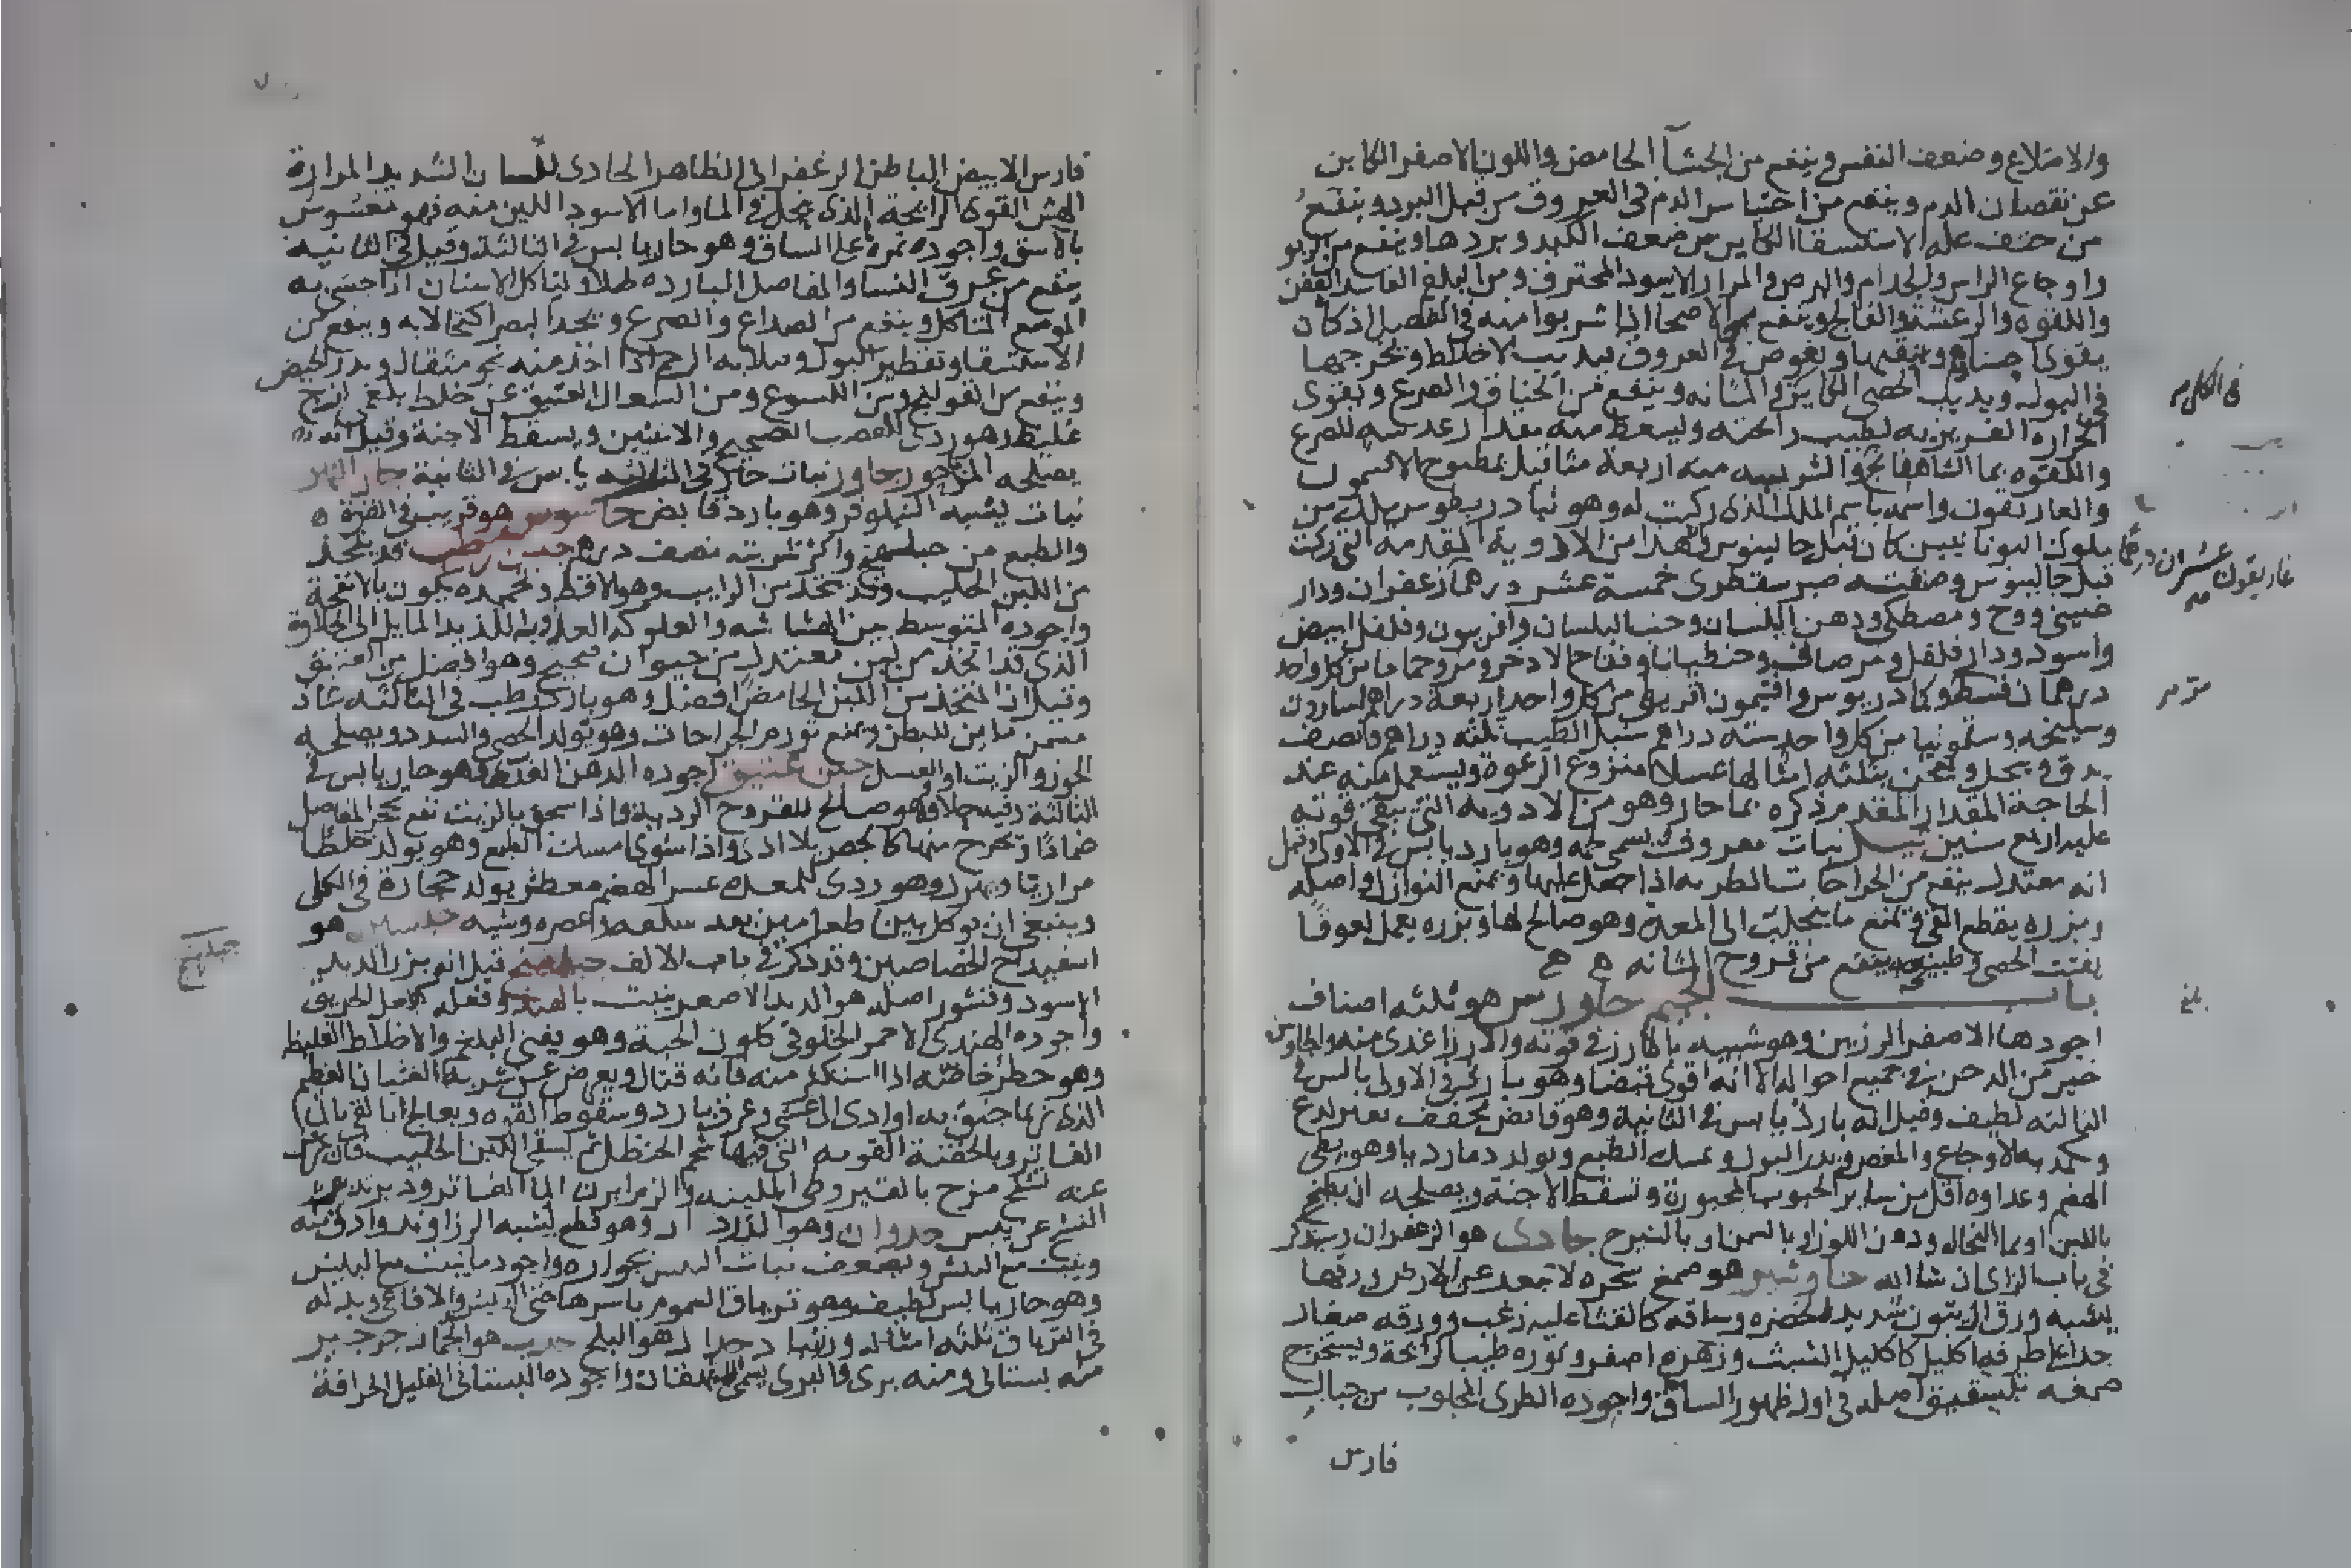 والامتلاع وضعف النفس وينفع من الجشآ الحامض واللون الاصفر الكاين
عن نقصان الدم وينفع من احتباس الدم فى العروق من قبل البرد وينفع
من ضعف علة الاستسقا الكاين من ضعف الكبد وبردها وينفع من الربو
واوجاع الراس والجدام والبرص والمرار الاسود المحترق ومن البلغم الفاسد العفن
واللقوه والرعشة والفالج وينفع الاصحا اذا شربوا منه فى الفصيل اذ كان
يقوى وينقيها ويغوص فى العروق فيديب الاخلاط ويخرجها
فى البول ويديب الحصى الكاين فى المثانه وينفع من الخناق والصرع ويقوى
الحراره الغريزيه لطيب رائحته وليسعط منه بقدار عدسه للصرع
واللقوه بما والشربه منه اربعة مثاقيل بمطبوخ
والغاريقون واسمه باسم الملك الذى ركبت له وهو ثيادريطوس ملك من
ملوك اليونانيين كان قبل جالينوس وهذا من الادوية المقدمه التى ركبت
قبل جالينوس وصفته صبر سقطرى خمسة عشر درهما زعفران ودار
صينى ووج ومصطكى ودهن البلسان وحب البلسان وافربيون وفلفل ابيض
واسود ودار فلفل ومر صافى وجنطيانا وفقاح الادخر ومر وحماما من كل واحد
درهمان قسط وكمادريوس وافتيمون اقريطى من كل واحد اربعة دراهم اسارون
وسليخه وسقمونيا من كل واحد سته دراهم سنبل الطيب ثلثه دراهم ونصف
يدق وينخل ويعجن بثلثه امثالها عسلا منزوع الرغوة ويستعمل منه عند
الحاجة المقدار المقدم ذكره بما حار وهو من الادويه التى تبقى قوته
عليه اربع سنين نبات معروف يسمى وهو بارد يابس فى الاولى وقيل
انه معتدل ينفع من الجراحات الطريه اذا جعل عليها ويمنع النوازل واصله
وبزره يقطع القى ويمنع ما يتحلب الى المعدة وهو صالح لها وبزره يعمل لعوقا
يفتت الحصى وطبيخه ينفع من قروح المثانه
باب الجيم جاورس هو ثلثه اصناف
اجودها الاصفر الرزين وهو شبيه بالارز فى قوته والارز اغدى منه والجاورس
خير من الدخن فى جميع احواله الا انه اقوى قبضا وهو بارد فى الاولى يابس فى
الثالثه لطيف وقيل انه بارد يابس فى الثانية وهو قابض مجفف بغير لدع
ويكمد به الاوجاع والمغص ويدر البول ويمسك الطبع ويولد دما رديا وهو بطى
الهضم وغداوه اقل من ساير الحبوب المخبوزة وتسقط الاجنة ويصلحه ان يطبخ
باللبن او بما النخاله ودهن اللوز او بالسمن او بالشيرج جادى هو الزعفران وسيذكر
فى باب الزاى ان شا الله جاوشير هو صمغ شجره لا تبعد عن الارض ورقها
يشبه ورق الزيتون شديد الخضره وساقه كالقثا عليه زغب وورقه صغار
جدا على طرفه اكليل كاكليل الشبث وزهره اصفر وبزره طيب الرائحة ويستخرج
صمغه بتشقيق اصله فى اول ظهور الساق واجوده الطرى المجلوب من جبال
فارس
فى الكلى
غاريقون عشران درهما
مر
بلغ
فارس الابيض الباطن الزعفرانى الظاهر الحادى للسان الشديد المرارة
الهش القوى الرايحة الذى ينحل فى الما واما الاسود اللين منه فهو مغشوش
بالاشق واجوده ثمره على الساق وهو حار يابس فى الثالثة وقيل فى الثانيه
ينفع من عرق النسا والمفاصل البارده طلا ولتاكل الاسنان اذا حشى به
الموضع المتاكل وينفع من الصداع والصرع ويحد البصر اكتحالا به وينفع من
الاستسقا وتقطير البول وصلابه الرحم اذا اخذ منه نحو مثقال ويدر الحيض
وينفع من القولنج ومن اللسوع ومن السعال العتيق عن خلط بلغمى لزج
غليظ وهو ردى للعصب الصحيح والانثيين ويسقط الاجنة وقيل انه
يصلحه نبات حار فى الثالثه يابس فى الثانية جار النهر
نبات يشبه النيلوفر وهو بارد قابض هو قريب فى القوة
والطبع من جبلهنج واكثر شربته نصف درهم جبن رطب قد يتخذ
من اللبن الحليب وقد يتخذ من الرايب وهو الاقط وتجمده يكون بالانفحة
واجوده المتوسط بين الهشاشه والعلوكه العذوبه اللذيذ المايل الى الحلاوة
الذى قد اتخذ من لبن معتدل من حيوان صحيح وهو افضل من العتيق
وقيل ان المتخذ من اللبن الحامض افضل وهو بارد رطب فى الثالثه غاد
مسمن ملين للبطن ويمنع تورم الجراحات وهو يولد الحصى والسدد ويصلحه
الجوز والزيت او العسل جبن عتيق اجوده الدهن وهو حار يابس فى
الثالثة وفيه جلا وهو صالح للقروح الرديه واذا سحق بالزيت نفع تحجر المفاصل
ضمادا وتخرج منها كالجص بلا اذى واذا شوى امسك الطبع وهو يولد خلطا
مراريا ويهزل وهو ردى للمعده عسر الهضم معطش يولد حجارة فى الكلى
وينبغى ان يوكل بين طعامين بعد سلقه وعصره وشيه هو
اسفيداج الجصاصين وقد ذكر فى باب الالف جبلهنج قيل انه بزر
الاسود وقشور اصله هو الاصفر ينبت بالهند وفعله كفعل الخربق
واجوده الهندى الاحمر الخلوقى كلون الحبة وهو يقى البلغم والاخلاط الغليظ
وهو خطر خاصته اذا استكثر منه فانه قتال ويعرض عن شربه الغشيان العظيم
الذى ربما خنق به او ادى الى غشى وعرق بارد وسقوط القوه ويعالج
الفاتر وبالحقنة القويه التى فيها شحم الحنظل ثم يسقى اللبن الحليب فان
عنه تشنج مزح بالقيروطى الملينه والزم ابزن الما الفاتر
التشنج عن يبس جدوار وهو قطع يشبه الزراوند وادق منه
وينبت مع البيش ويضعف نبات البيش بجواره واجود ما ينبت مع البيش
وهو حار يابس لطيف وهو ترياق السموم باسرها حتى البيش والافاعى وبدله
فى الترياق ثلثه امثاله وزنبا هو البلح هو الجمار جرجير
منه بستانى ومنه برى والبرى يسمى واجوده البستانى القليل الحرافة
جبلهنج